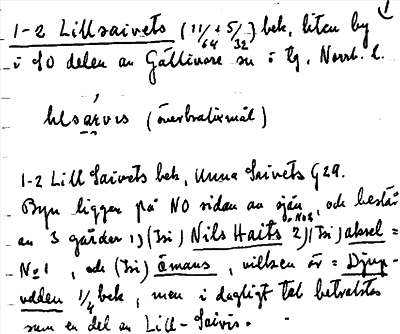 1-2 Lillsaivets (11/64 + 5/32) bek, liten by
i SO delen av Gällivare sn i Lg. Norrb. l.
lılsárvıs (överkalixmål)
1-2 Lill Saivets bek, Unna Saivets G29.
Byn ligger på NO sidan av sjön, och består
av 3 gårder 1) (Isi) Nils Haits No2, 2) (Isi) aksel =
No1, och (Isi) Ömans, vilken är = Djup-
udden 1/4 bek, men i dagligt tal betraktas
som en del av Lill-Saivis.